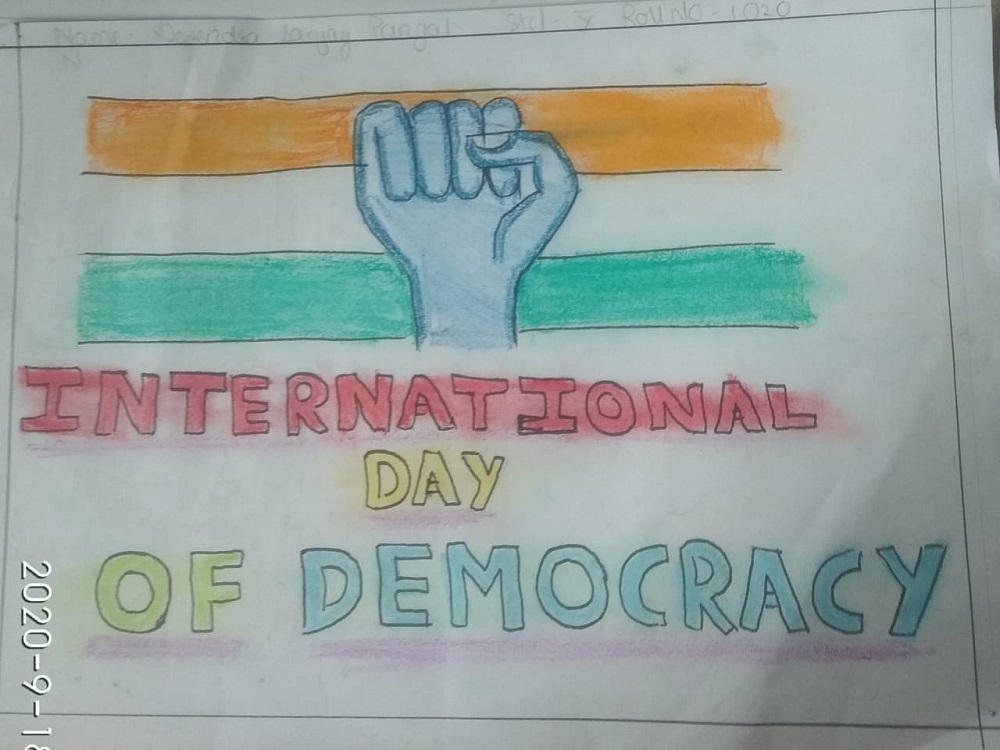 Name - Devendra Sanjay Pangat Std - X Roll No - 1020
INTERNATIONAL
DAY
OF DEMOCRACY
2020-9-18